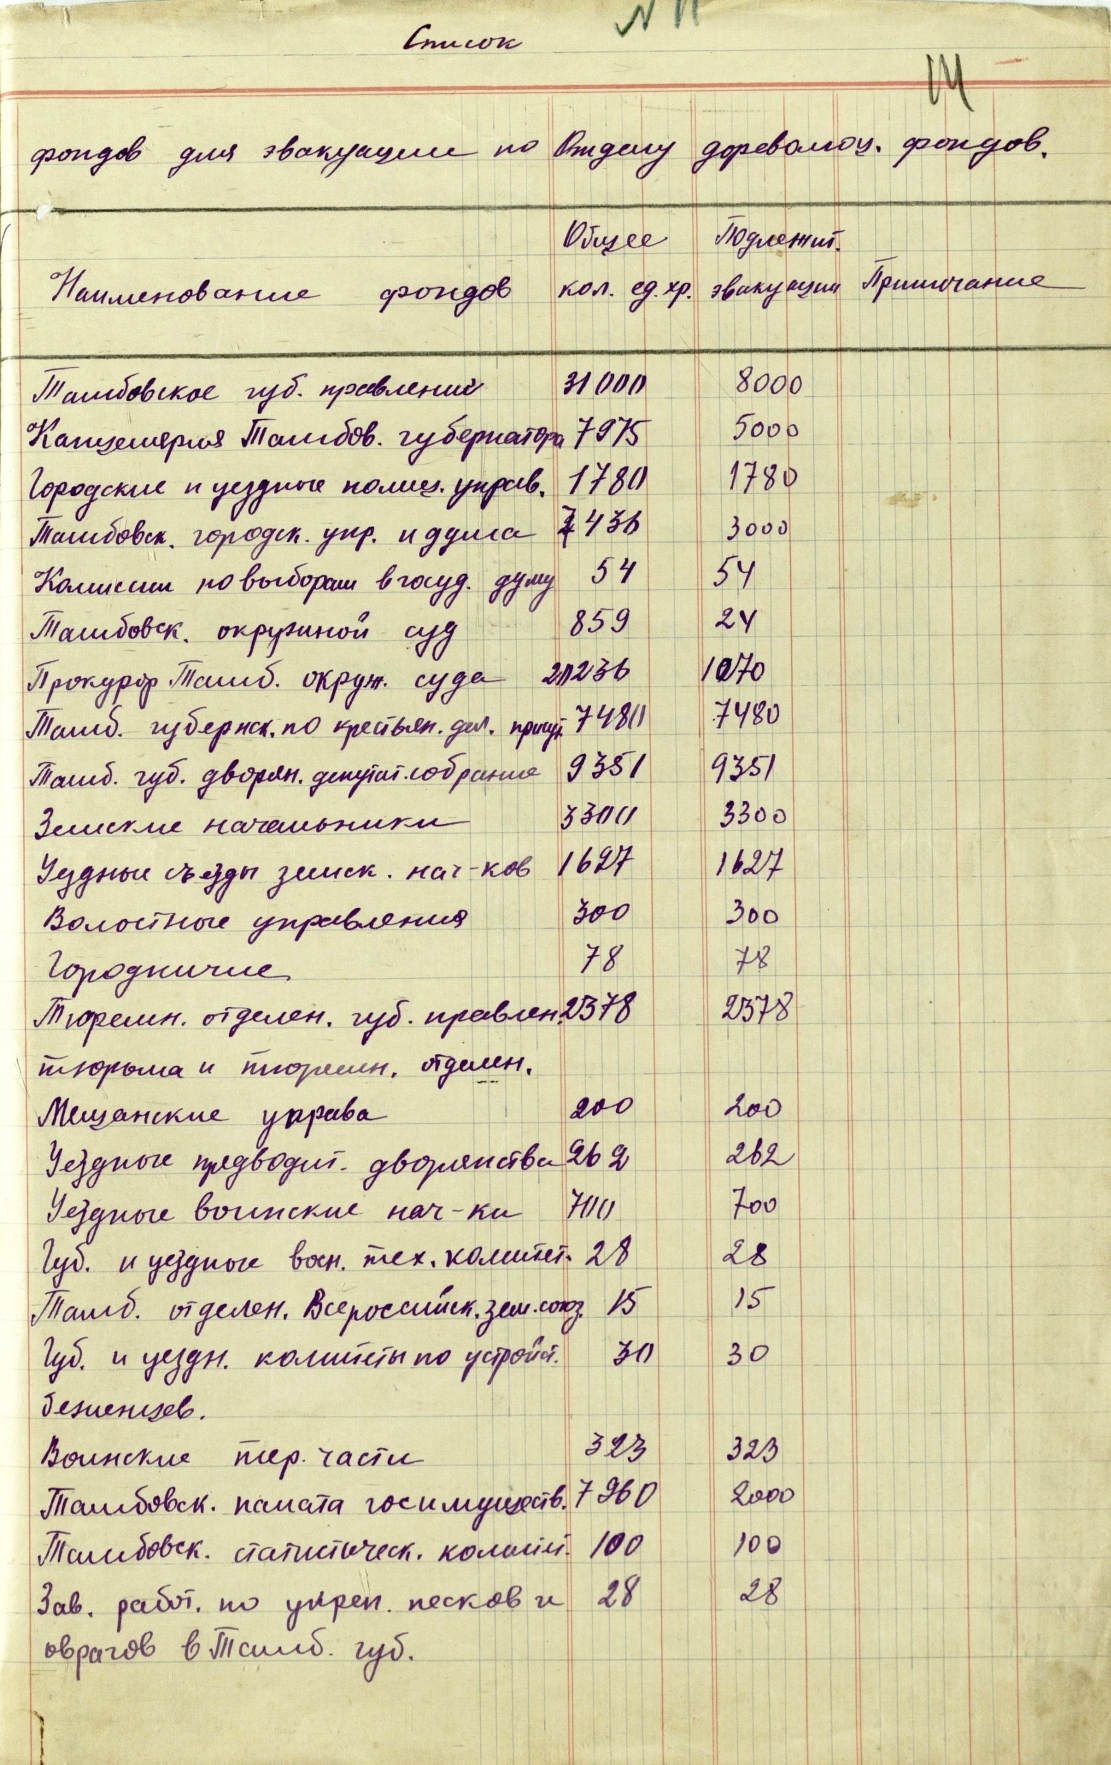 Список
фондов для эвакуации по Отделу дореволюц. фондов.
Общее Подлежит.
Наименование фондов кол. ед. хр. эвакуации Примечание
Тамбовское губ. правление 31000 8000
Канцелярия Тамбов. губернатора 7975 5000
Городские и уездные полиц. управ. 1780 1780
Тамбовск. городск. упр. и дума 7436 3000
Комиссии по выборам в госуд. думу 54 54
Тамбовск. окружной суд 859 24
Прокурор Тамб. окруж. суда 20236 1070
Тамб. губернск. по крестьян. дел. присут. 7480 7480
Тамб. губ. дворян. депутат. собрание 9351 9351
Земские начальники 3300 3300
Уездные съезды земск. нач-ков 1627 1627
Волостные управления 300 300
Городничие 78 78
Тюремн. отделен. губ. правлен. 2378 2378
тюрьма и тюремн. отделен.
Мещанские управа 200 200
Уездные предводит. дворянства 262 262
Уездные воинские нач-ки 700 700
Губ. и уездные воен. тех. комитет. 28 28
Тамб. отделен. Всероссийск. зем. союз. 15 15
Губ. и уездн. комитеты по устройст. 30 30
беженцев.
Воинские тер. части 323 323
Тамбовск. палата госимуществ. 7960 2000
Тамбовск. статистическ. комит. 100 100
Зав. работ. по укреп. песков и 28 28
оврагов в Тамб. губ.